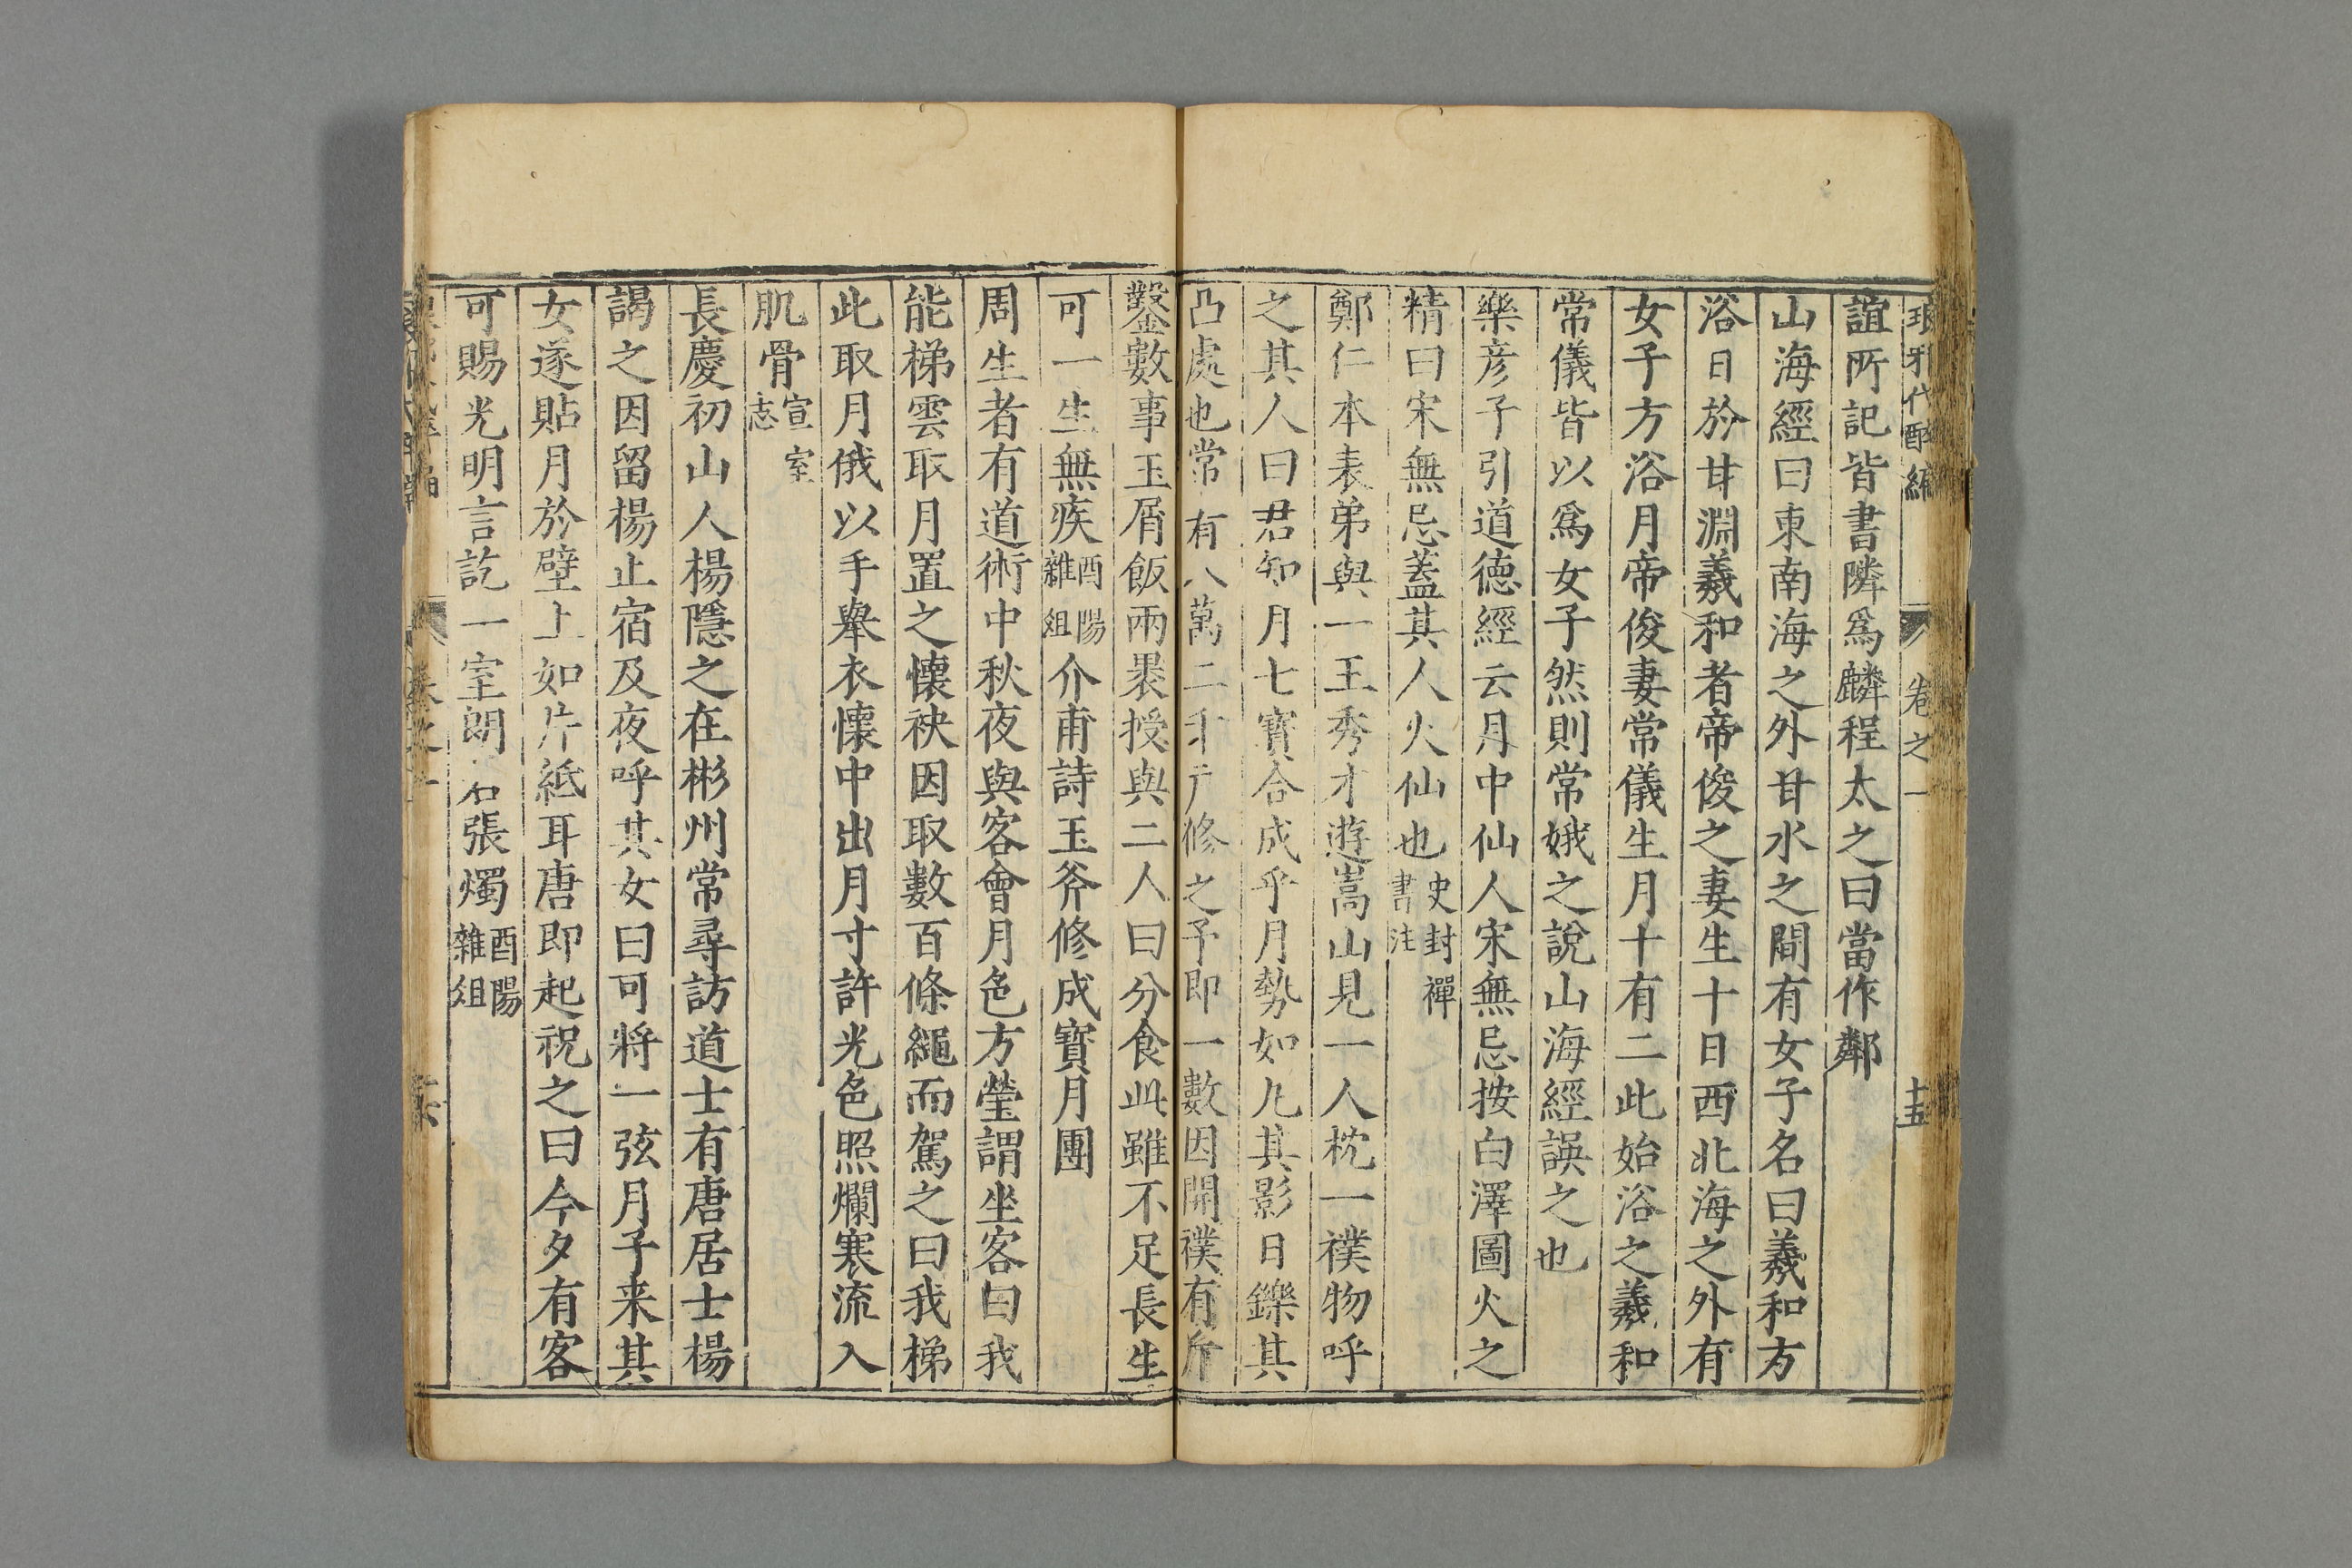 琅邪代醉編 卷之一 十五
誼所記皆書隣爲麟程太之曰當作鄰
山海經曰東南海之外甘水之間有女子名曰羲和方
浴日於甘淵羲和者帝俊之妻生十日西北海之外有
女子方浴月帝俊妻常儀生月十有二此始浴之羲和
常儀皆以爲女子然則常娥之說山海經誤之也
樂彦子引道德經云月中仙人宋無忌按白澤圖火之
精曰宋無忌蓋其人火仙也史封禪書注
鄭仁本表弟與一王秀才遊嵩山見一人枕一襆物呼
之其人曰君知月七寳合成乎月勢如丸其影日鑠其
凸處也常有八萬二千户修之予即一數因開襆有斤
鑿數事玉屑飯兩褁授與二人曰分食此雖不足長生
可一生無疾酉陽雜俎介甫詩玉斧修成寳月團
周生者有道術中秋夜與客會月色方瑩謂坐客曰我
能梯雲取月置之懷袂因取數百條繩而駕之曰我梯
此取月俄以手舉衣懷中出月寸許光色照爛寒流入
肌骨宣室志
長慶初山人楊隱之在彬州常尋訪道士有唐居士楊
謁之因留楊止宿及夜呼其女曰可將一弦月子来其
女遂貼月於壁上如片紙耳唐即起祝之曰今夕有客
可賜光明言訖一室朗若張燭酉陽雜俎
卷之一 十六